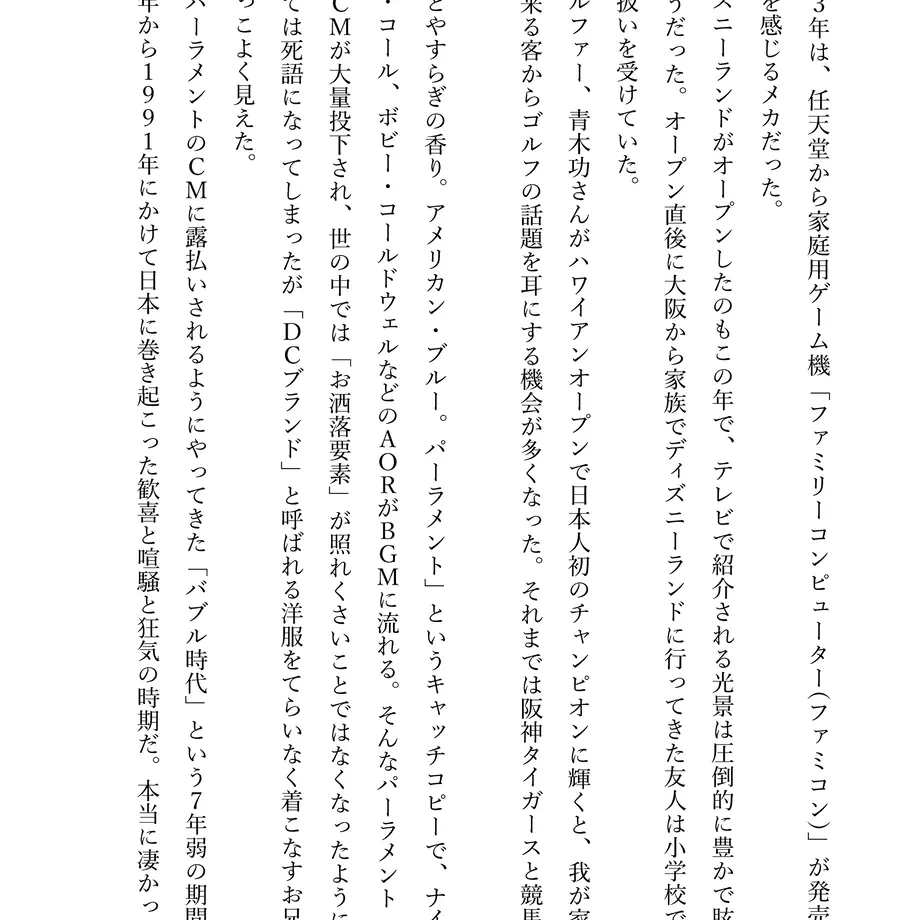 3年は、任天堂から家庭用ゲーム機「ファミリーコンピューター(ファミコン)」が発売
を感じるメカだった。
ズニーランドがオープンしたのもこの年で、テレビで紹介される光景は圧倒的に豊かで眩
うだった。オープン直後に大阪から家族でディズニーランドに行ってきた友人は小学校で
扱いを受けていた。
ルファー、青木功さんがハワイアンオープンで日本人初のチャンピオンに輝くと、我が家
来る客からゴルフの話題を耳にする機会が多くなった。それまでは阪神タイガースと競馬
とやすらぎの香り。アメリカン・ブルー。パーラメント」というキャッチコピーで、ナイ
・コール、ボビー・コールドウェルなどのAORがBGMに流れる。そんなパーラメント
CMが大量投下され、世の中では「お洒落要素」が照れくさいことではなくなったように
ては死語になってしまったが「DCブランド」と呼ばれる洋服をてらいなく着こなすお兄
っこよく見えた。
パーラメントのCMに露払いされるようにやってきた「バブル時代」という7年弱の期間
年から1991年にかけて日本に巻き起こった歓喜と喧騒と狂気の時期だ。本当に凄かっ